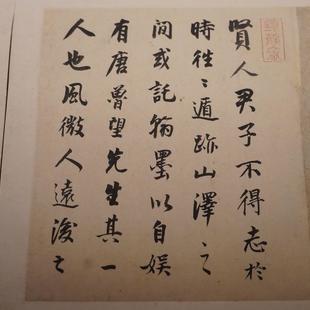 賢人君子不得志於
時往々遁跡山澤之
間或託翰墨以自娱
有唐魯望先生其一
人也風微人遠後之